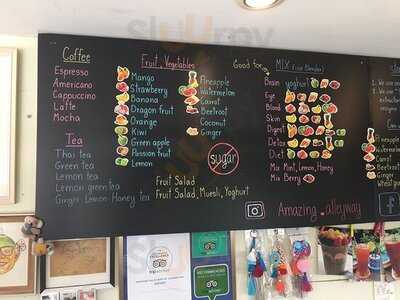 Coffee
Espresso
Americano
Cappuccino
Latte
Mocha
Tea
Thai tea
Green tea
Lemon tea
Lemon green tea
Ginger Lemon Honey tea
Fruit, Vegetables
Mango
Strawberry
Banana
Dragon fruit
Orange
Kiwi
Green apple
Passion fruit
Lemon
Pineapple
Watermelon
Carrot
Beetroot
Coconut
Ginger
sugar
Fruit Salad
Fruit Salad, Muesli, Yoghurt
Good for
MIX
Brain yoghurt
Eye
Blood
Skin
Digest
Detox
Diet
Mix Mint, Lemon, Honey
Mix Berry
Amazing.alleyway
Watermelon
Carrot
Beetroot
Ginger